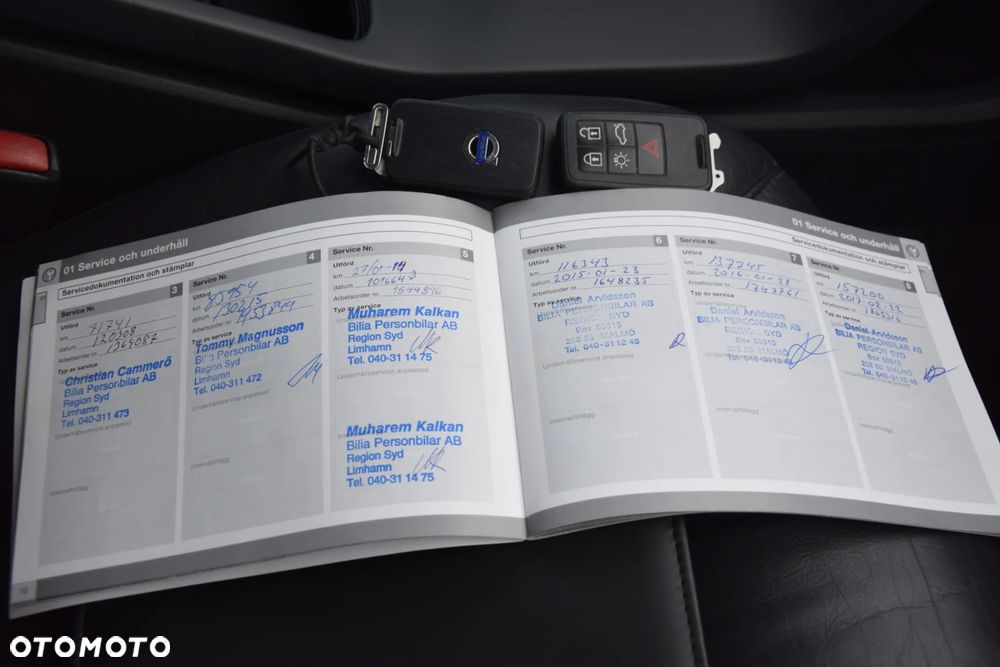 01 Service och underhåll
Servicedokumentation och stämplar
Service Nr. 3
Utförd
km 71741
datum 120308
Arbetsorder nr. 1369087
Typ av service
Christian Cammerö
Bilia Personbilar AB
Region Syd
Limhamn
Tel. 040-311 473
Underhållsservice anpassad
Intervalltillägg
Service Nr. 4
Utförd
km 85954
datum 130215
Arbetsorder nr.
Typ av service
Tommy Magnusson
Bilia Personbilar AB
Region Syd
Limhamn
Tel. 040-311 472
Underhållsservice anpassad
Intervalltillägg
Service Nr. 5
Utförd 27/01-14
km 101664
datum
Arbetsorder nr. 1544896
Typ av service
Muharem Kalkan
Bilia Personbilar AB
Region Syd
Limhamn
Tel. 040-31 14 75
Underhållsservice anpassad
Muharem Kalkan
Bilia Personbilar AB
Region Syd
Limhamn
Tel. 040-31 14 75
10
01 Service och underhåll
Servicedokumentation och stämplar
Service Nr. 6
Utförd
km 116343
datum 2015-01-23
Arbetsorder nr. 1648235
Typ av service
Daniel Arvidsson
BILIA PERSONBILAR AB
REGION SYD
Box 60315
202 60 MALMÖ
Tel. 040-31 12 48
Underhållsservice anpassad
Intervalltillägg
Service Nr. 7
Utförd
km 137245
datum 2016-01-28
Arbetsorder nr. 1747761
Typ av service
Daniel Arvidsson
BILIA PERSONBILAR AB
REGION SYD
202 60 MALMÖ
Tel. 040-31 12 48
Intervalltillägg
Service Nr. 8
Utförd
km 157200
datum 2017-02-22
Arbetsorder nr.
Typ av service
Daniel Arvidsson
BILIA PERSONBILAR AB
REGION SYD
202 60 MALMÖ
Tel. 040-31 12 48
Intervalltillägg
OTOMOTO